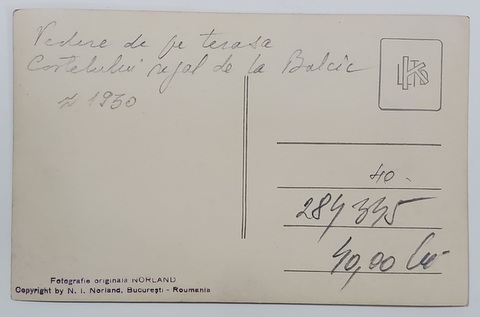 Vedere de pe terasa
Castelului regal de la Balcic
≈ 1930
40.-
284335
40,00 lei
Fotografie originale NORLAND
Copyright by N. I. Norland, București - Roumania